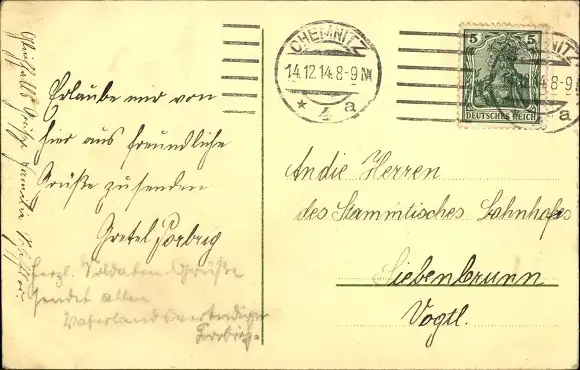 CHEMNITZ
14.12.14.8-9 N
* 4 a
5 5
DEUTSCHES REICH
NITZ
4.8-9 N
a
Erlaube mir von
hier aus freundliche
Grüße zu senden
Gretel
Herzl. Soldaten-Grüße
sendet allen
Vaterlandsverteidiger
An die Herren
des Stammtisches Bahnhofes
Siebenbrunn
Vogtl.
Gleichfalls Grüße Familie